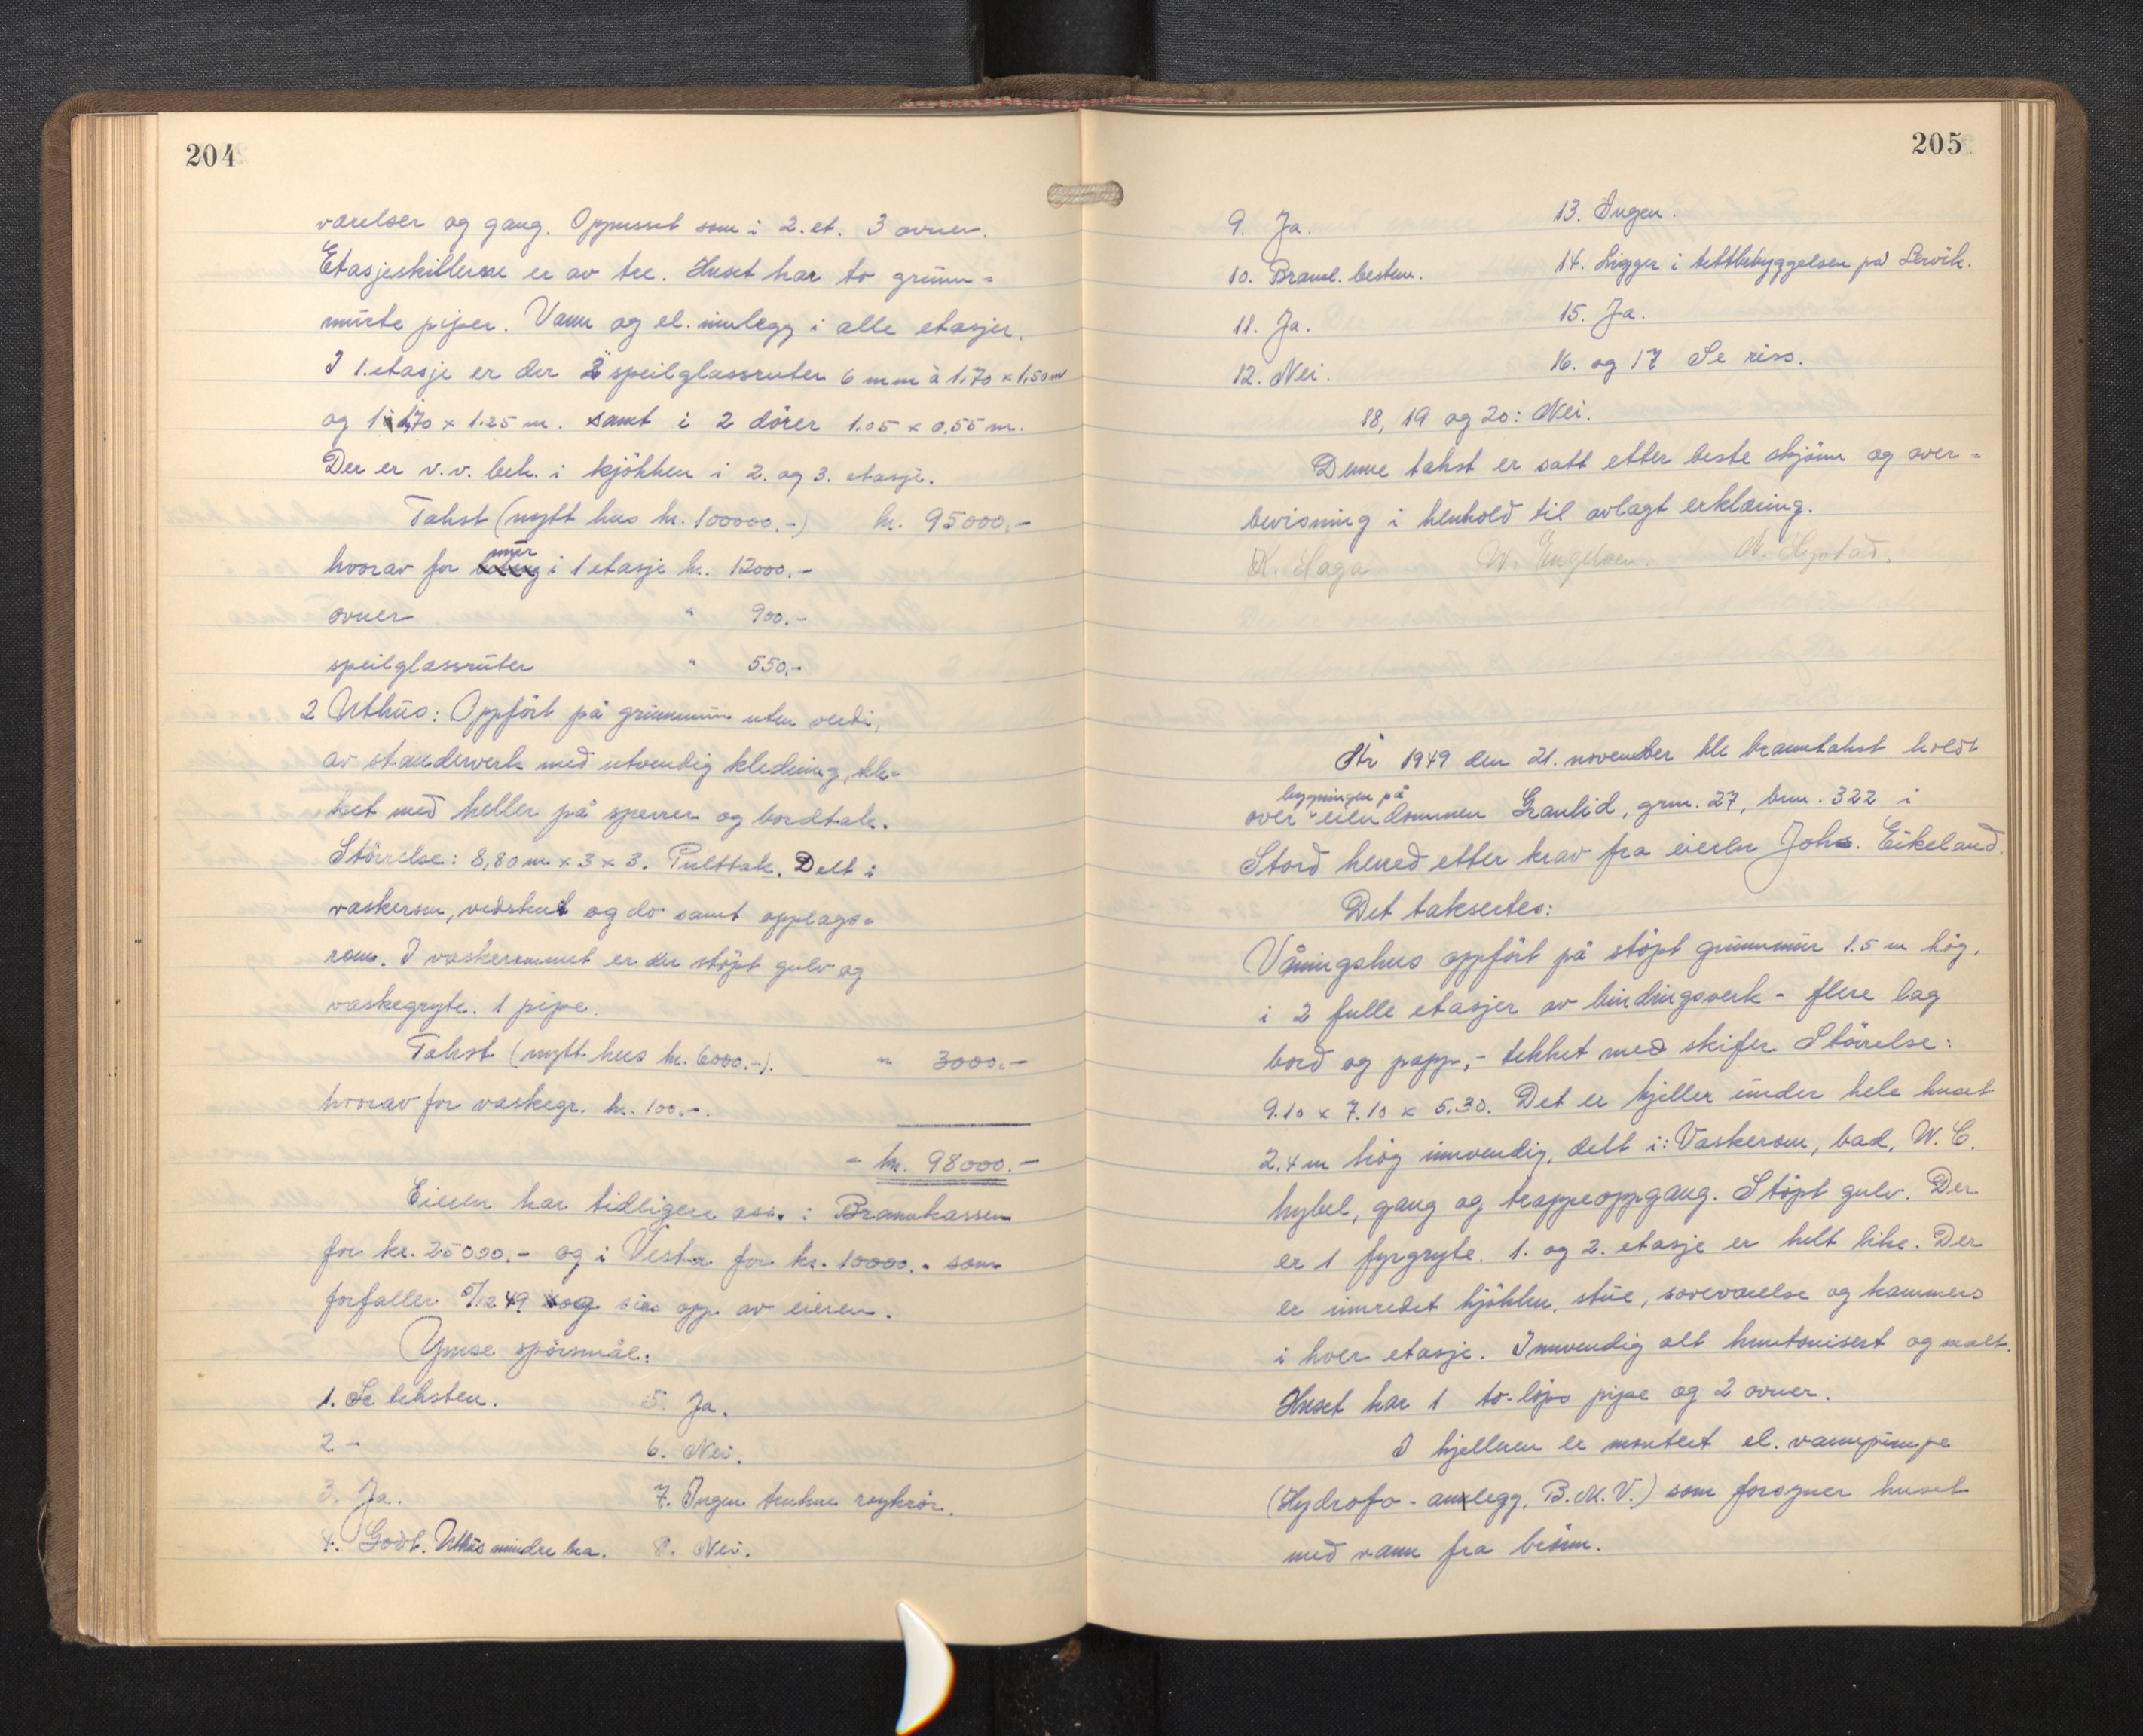 204
værelser og gang. Oppusset som i 2. et. 3 ovner.
Etasjeskillerne er av tre. Huset har to grunn-
murte piper. Vann og el. innlegg i alle etasjer.
I 1. etasje er der 2 speilglassruter 6 mm à 1.70 x 1.50 m
og 1 à 1.70 x 1.25 m. samt i 2 dörer 1.05 x 0.55 m.
Der er v.v. beh. i kjökken i 2. og 3. etasje.
Takst (nytt hus kr. 100000.-) kr. 95000.-
hvorav for mur i 1 etasje kr. 12000.-
ovner " 900.-
speilglassruter " 550.-
2 Uthus: Oppfört på grunnmur uten verdi,
av standerverk med utvendig kledning, tek-
ket med heller på sperrer og bordtak.
Störrelse: 8,80 m x 3 x 3. Pulttak. Delt i
vaskerom, vedskut og do samt opplags-
rom. I vaskerommet er der stöpt gulv og
vaskegryte. 1 pipe.
Takst (nytt hus kr. 6000.-). " 3000.-
hvorav for vaskegr. kr. 100.-.
- kr. 98000.-
Eieren har tidligere ass. i Brannkassen
for kr. 25000.- og i Vesta for kr. 10000.- som
forfaller 5/12 49 og sies opp av eieren.
Ymse spörsmål:
1. Se teksten. 5. Ja.
2 - 6. Nei.
3. Ja. 7. Ingen trukne röykrör.
4. Godt. Uthus mindre bra. 8. Nei.
205
9. Ja. 13. Ingen.
10. Brannl. bestem. 14. Ligger i tettbebyggelsen på Lervik.
11. Ja. 15. Ja.
12. Nei. 16. og 17 Se riss.
18, 19 og 20: Nei.
Denne takst er satt etter beste skjönn og over-
bevisning i henhold til avlagt erklæring.
K. Haga W. Engelsen. N. Hystad.
År 1949 den 21. november ble branntakst holdt
bygningen på
over eiendommen Granlid, grn. 27, brn. 322 i
Stord hered etter krav fra eieren Johs. Eikeland.
Det takseres:
Våningshus oppfört på stöpt grunnmur 1.5 m hög,
i 2 fulle etasjer av bindingsverk - flere lag
bord og papp, - tekket med skifer. Störrelse:
9.10 x 7.10 x 5.30. Det er kjeller under hele huset
2.4 m hög innvendig, delt i: Vaskerom, bad, W.C.
hybel, gang og trappeoppgang. Stöpt gulv. Der
er 1 fyrgryte. 1. og 2. etasje er helt like. Der
er innredet kjökken, stue, soveværelse og kammers
i hver etasje. Innvendig alt huntonisert og malt.
Huset har 1 to-löps pipe og 2 ovner.
I kjelleren er montert el. vannpumpe
(Hydrofo-anlegg, B.M.V.) som forsyner huset
med vann fra brönn.